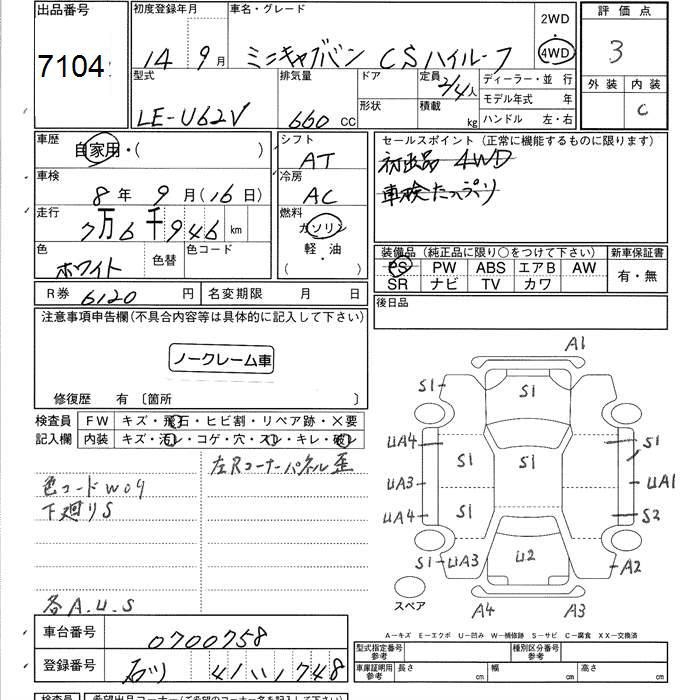 出品番号 初度登録年月 車名・グレード 2WD 評価点
7104 14 9月 ミニキャブバン CSハイルーフ 4WD 3
型式 排気量 ドア 定員 2/4人 ディーラー・並行 外装 内装
形状 積載 kg モデル年式 年 C
LE-U62V 660 CC ハンドル 左・右
車歴 シフト セールスポイント(正常に機能するものに限ります)
自家用・( ) AT 4WD
車検 冷房 車検たっぷり
8年 9月(16日) AC
走行 燃料
7万6千946km ガソリン
色 色替 色コード 軽・油 装備品(純正品に限り○をつけて下さい) 新車保証書
ホワイト ( ) PS PW ABS エアB AW 有・無
R券 6120円 名変期限 月 日 SR ナビ TV カワ
後日品
注意事項申告欄(不具合内容等は具体的に記入して下さい)
ノークレーム車
修復歴 有 〔箇所 〕
検査員 FW キズ・飛石・ヒビ割・リペア跡・×要
記入欄 内装 キズ・汚レ・コゲ・穴・スレ・キレ・破レ
左Rコーナーパネル歪
色コードW09
下廻りS
各A.U.S
A1
S1 S1
UA4 S1 S1 S1
UA3 UA1
UA4 S1 S2
UA3 S1 U2 A2
スペア A4 A3
A-キズ E-エクボ U-凹み W-補修跡 S-サビ C-腐食 XX-交換済
車台番号 0700758
型式指定番号 参考 種別区分番号 参考
登録番号 石川 41 い 1748
車庫証明用 参考 長さ cm 幅 cm 高さ cm
検査員 希望出品コーナー(ご希望のコーナー名を記入して下さい)